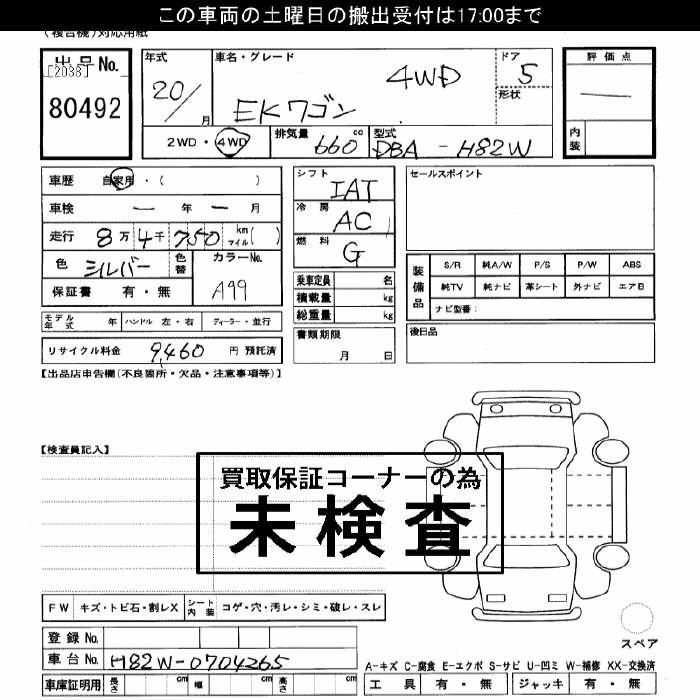 この車両の土曜日の搬出受付は17:00まで
(複合機)対応用紙
出品No.
[2038]
80492
年式 20/ 月
車名・グレード
4WD
EKワゴン
ドア 5
形状
評価点
—
内装
2WD・4WD
排気量 660 cc
型式 DBA - H82W
車歴 自家用・( )
車検 — 年 — 月
走行 8万 4千 750 km マイル( )
色 シルバー 色替
カラーNo. A99
保証書 有・無
モデル年式 年 ハンドル 左・右 ディーラー・並行
リサイクル料金 9,460 円 預託済
シフト IAT
冷房 AC
燃料 G
乗車定員 名
積載量 kg
総重量 kg
書類期限
月 日
セールスポイント
装備品
S/R 純A/W P/S P/W ABS
純TV 純ナビ 革シート 外ナビ エアB
ナビ型番:
後日品
【出品店申告欄(不良箇所・欠品・注意事項等)】
【検査員記入】
買取保証コーナーの為
未検査
FW キズ・トビ石・割レX シート内装 コゲ・穴・汚レ・シミ・破レ・スレ
スペア
登録No.
車台No. H82W-0704265
車庫証明用 長さ cm 幅 cm 高さ cm
A-キズ C-腐食 E-エクボ S-サビ U-凹ミ W-補修 XX-交換済
工具 有・無 ジャッキ 有・無